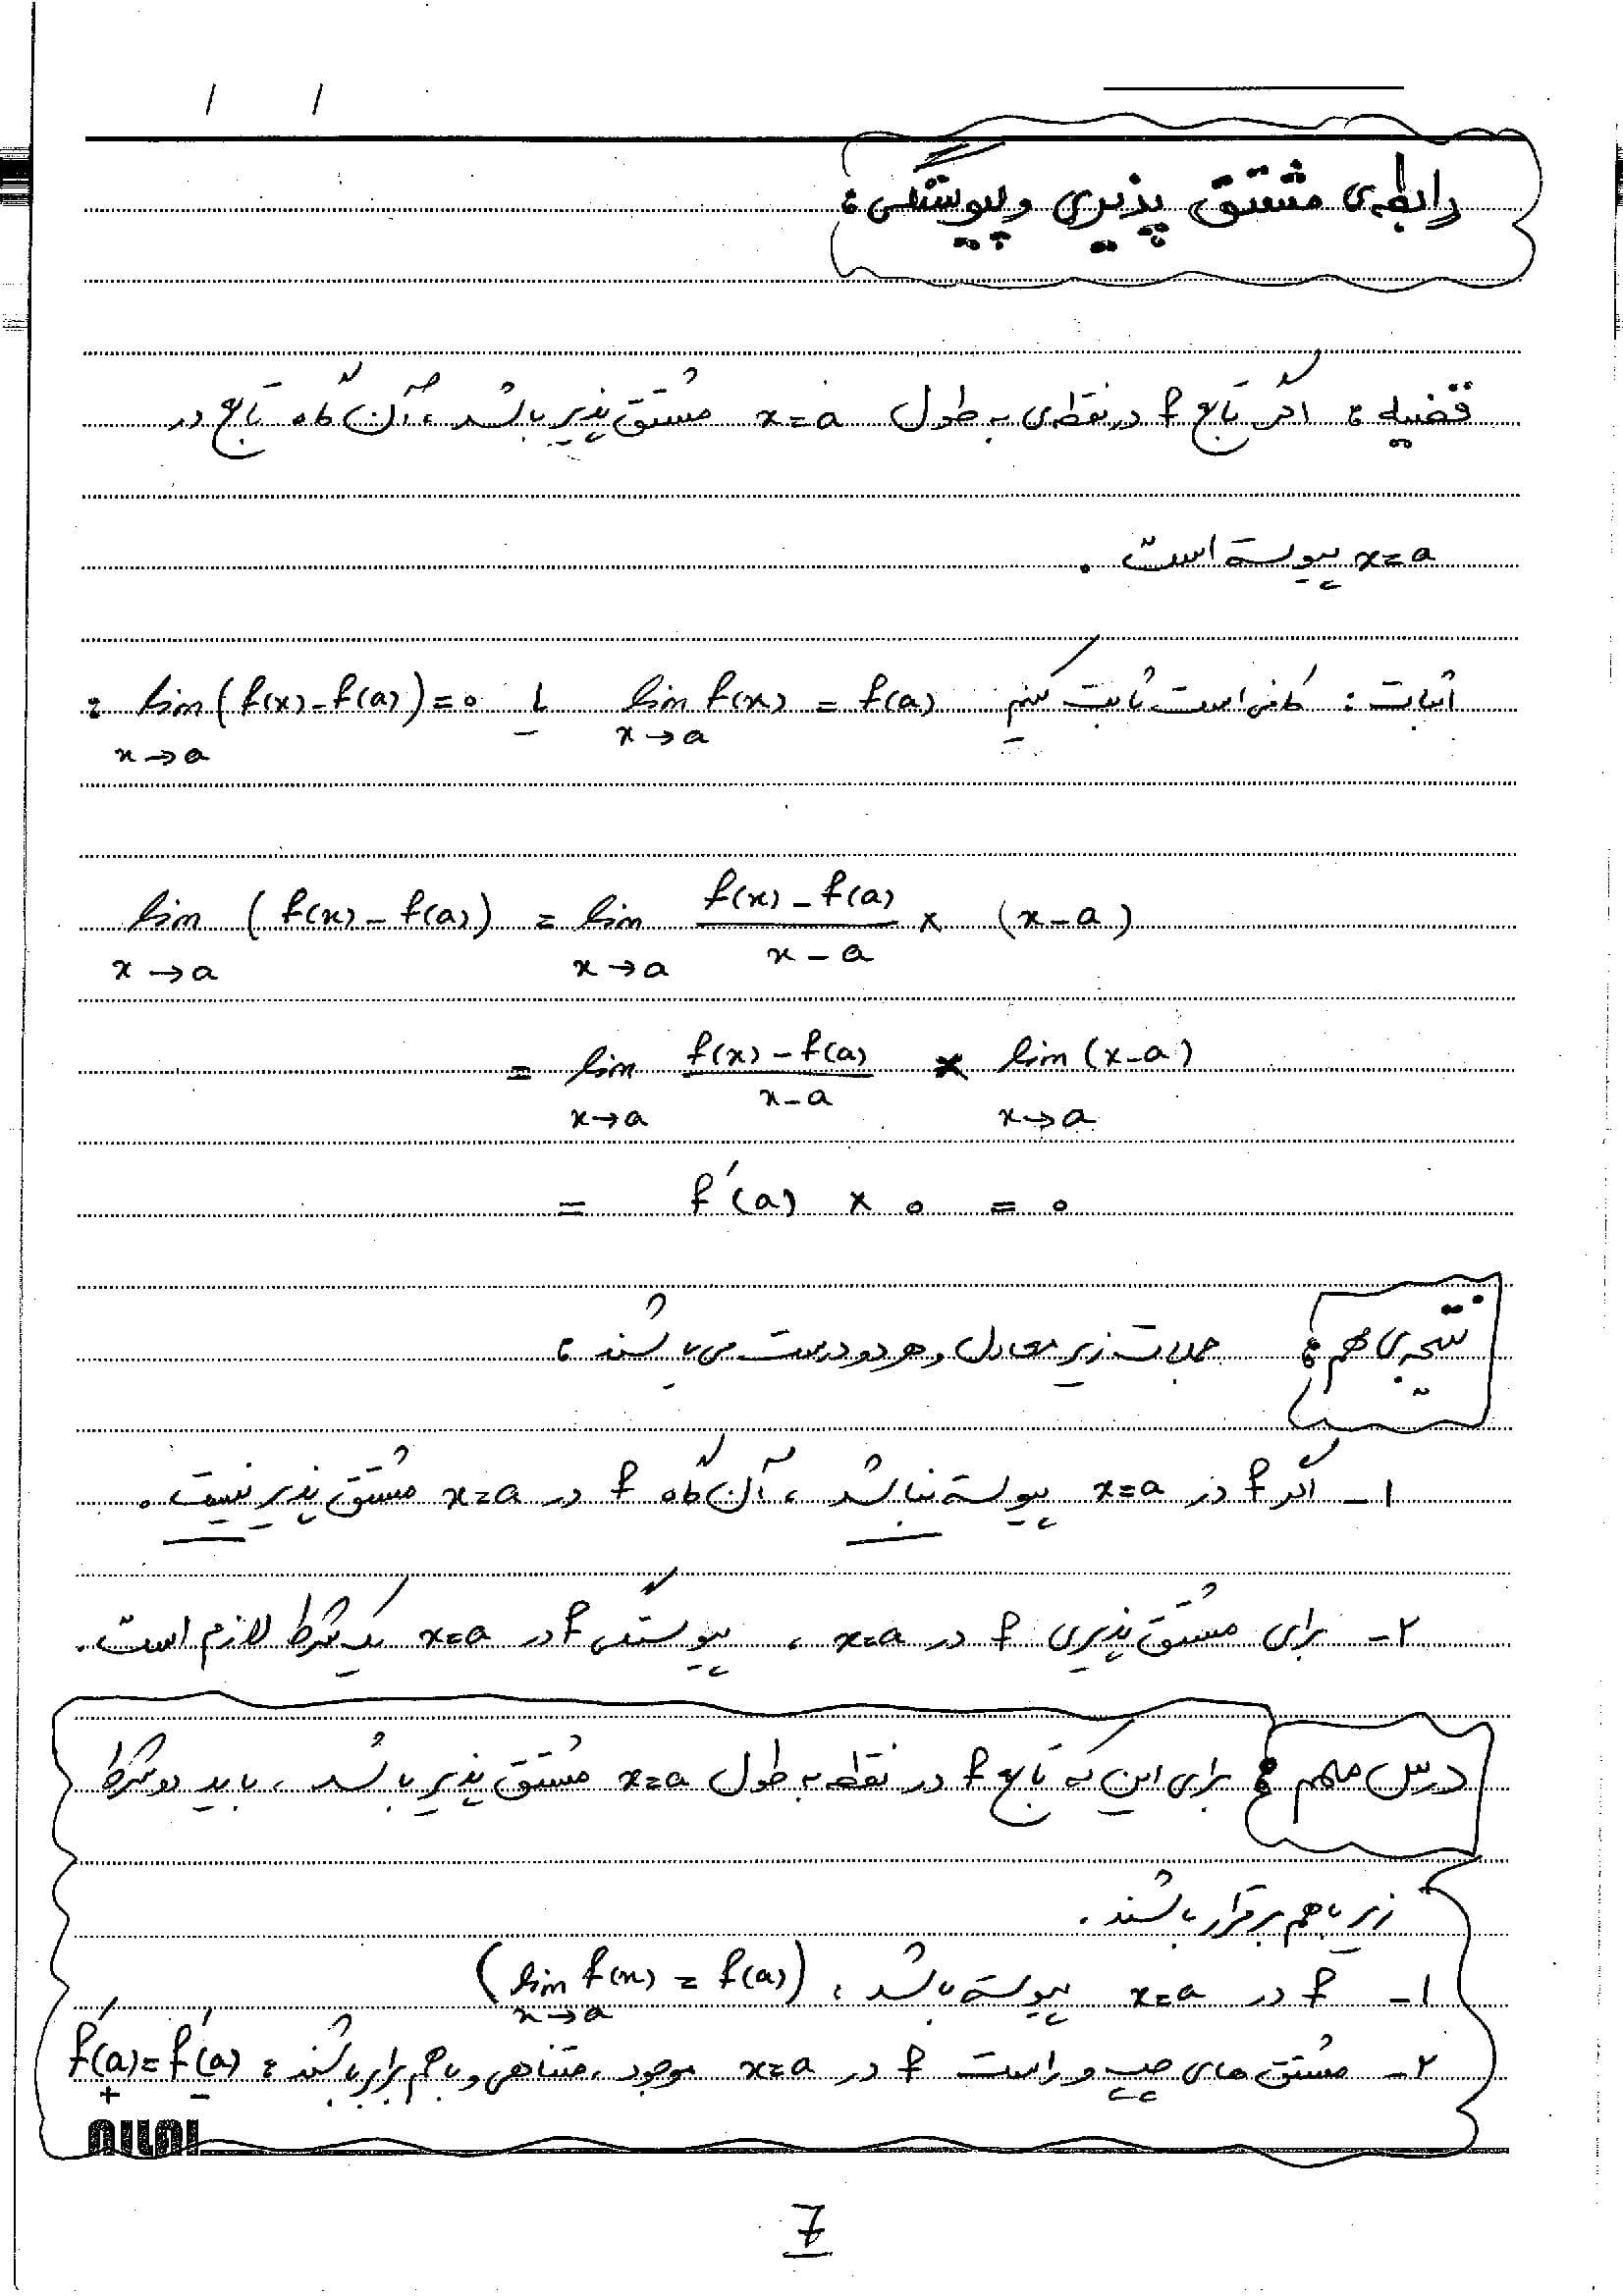 رابطه‌ی مشتق پذیری و پیوستگی :
قضیه : اگر تابع f در نقطه‌ی به طول x=a مشتق پذیر باشد ، آن گاه تابع در
x=a پیوسته است .
اثبات : کافی است ثابت کنیم lim f(x) = f(a) یا lim (f(x) - f(a)) = 0 :
x→a x→a
lim (f(x) - f(a)) = lim (f(x) - f(a))/(x - a) × (x - a)
x→a x→a
= lim (f(x) - f(a))/(x - a) × lim (x - a)
x→a x→a
= f'(a) × 0 = 0
نتیجه‌ی مهم : جملات زیر معادل و هر دو درست می باشند :
۱- اگر f در x=a پیوسته نباشد ، آن گاه f در x=a مشتق پذیر نیست .
۲- برای مشتق پذیری f در x=a ، پیوستگی f در x=a یک شرط لازم است .
درس مهم : برای این که تابع f در نقطه به طول x=a مشتق پذیر باشد ، باید دو شرط
زیر با هم برقرار باشند .
۱- f در x=a پیوسته باشد ، (lim f(x) = f(a))
x→a
۲- مشتق های چپ و راست f در x=a موجود ، متناهی و با هم برابر باشند : f'₊(a) = f'₋(a)
7